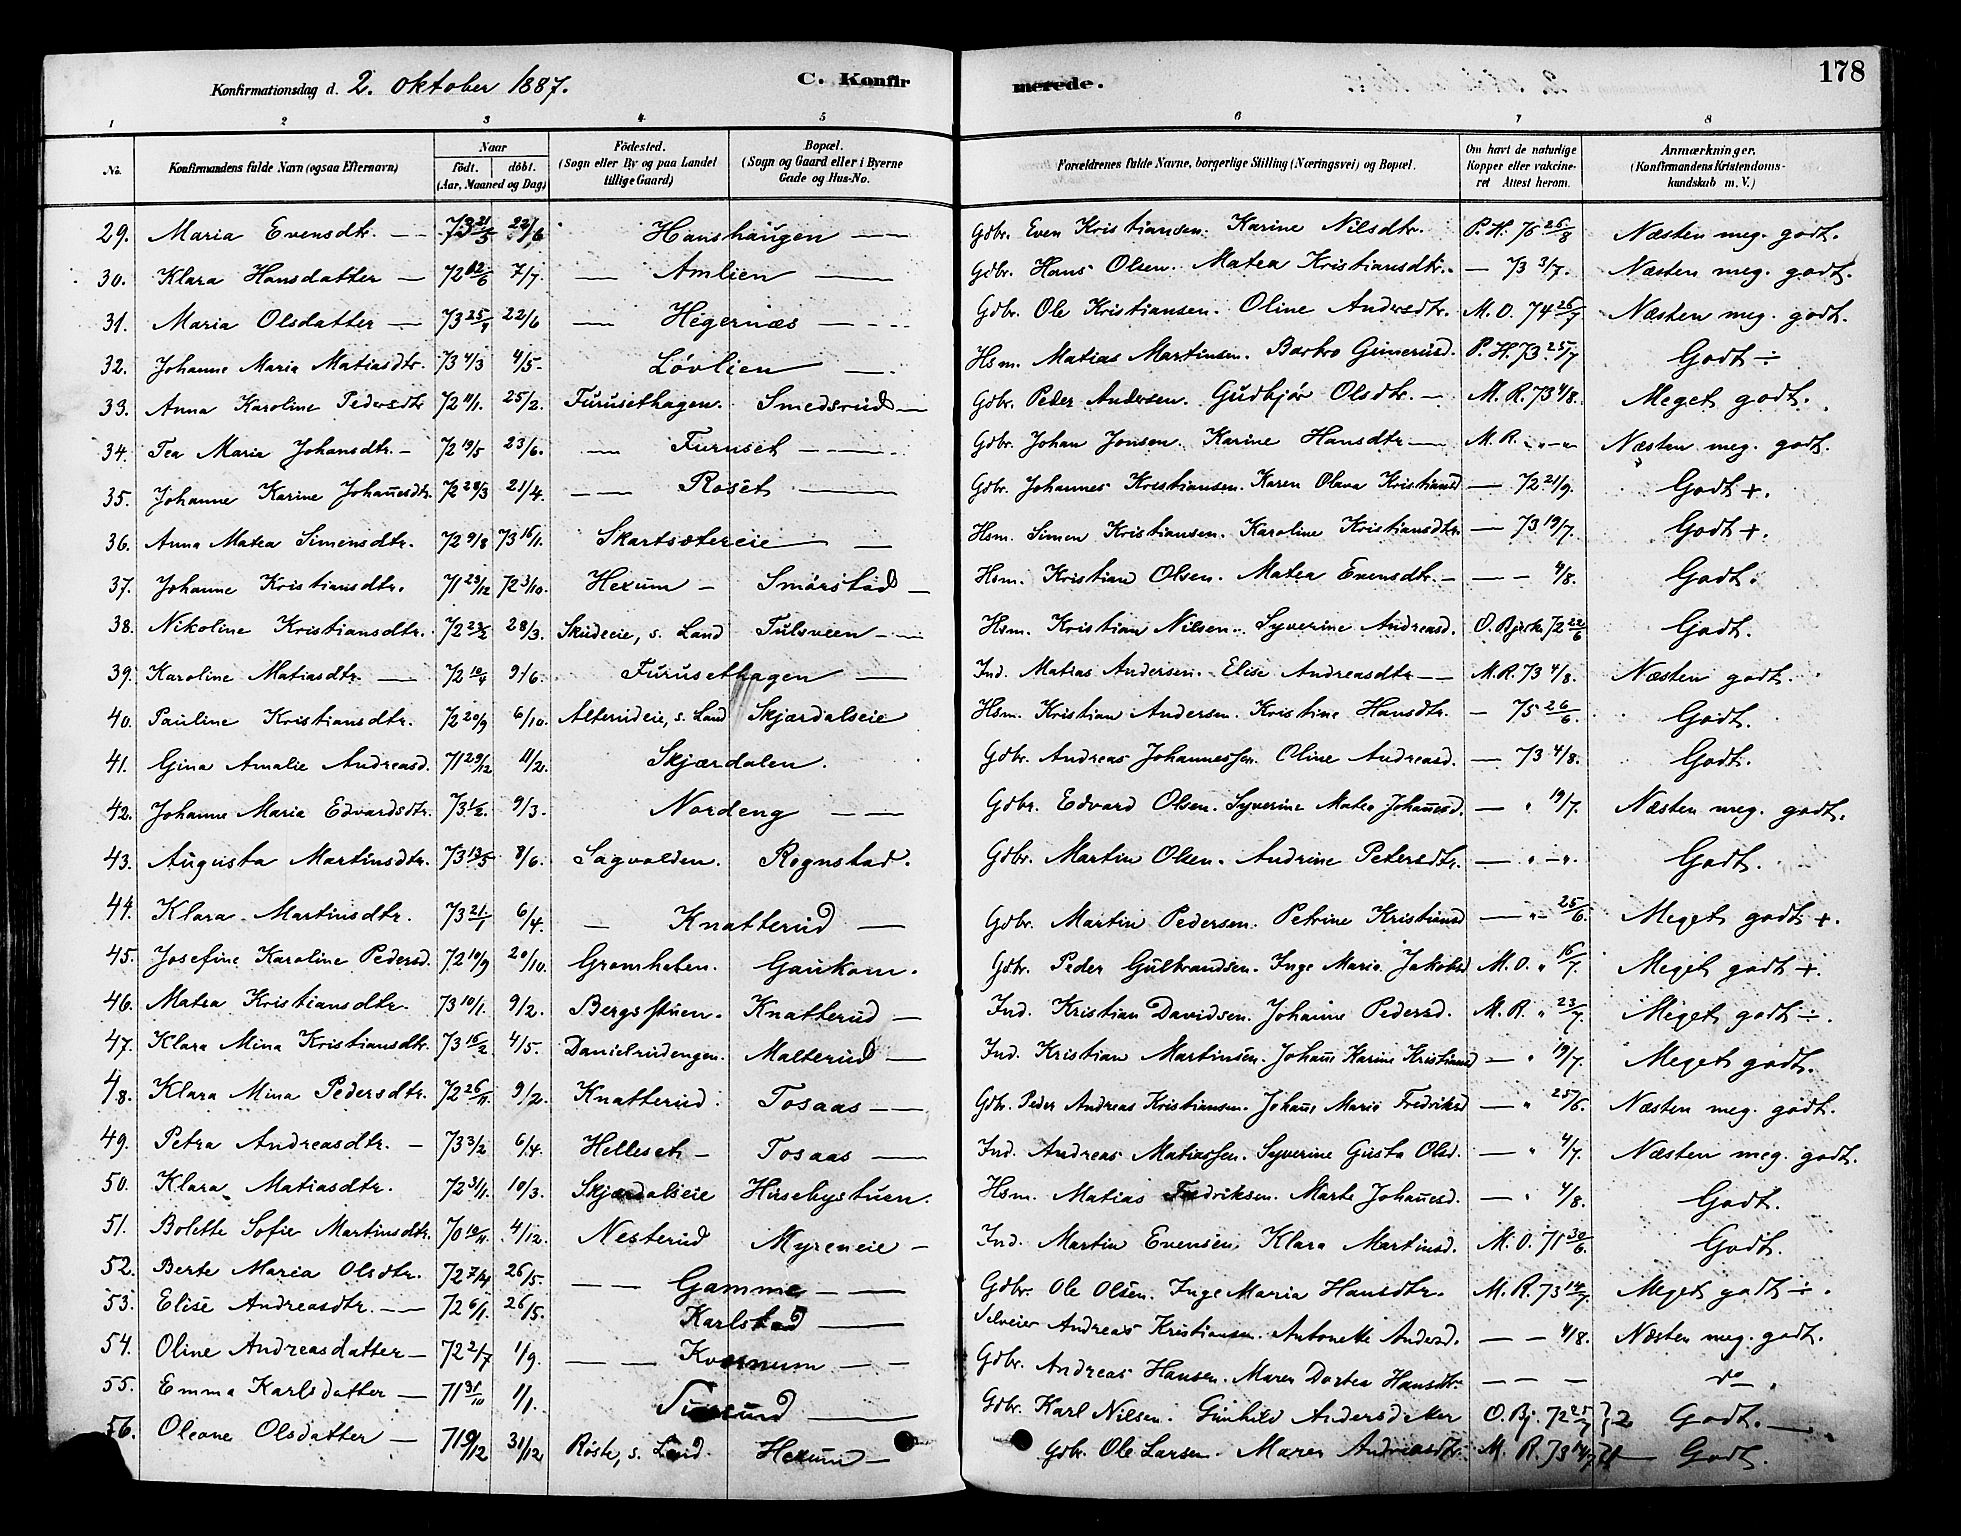 Konfirmationsdag d. 2. oktober 1887. C. Konfirmerede. 178
1 2 3 4 5 6 7 8
No. Konfirmandens fulde Navn (ogsaa Efternavn) Naar födt. döbt. (Aar, Maaned og Dag) Födested. (Sogn eller By og paa Landet tillige Gaard) Bopæl. (Sogn og Gaard eller i Byerne Gade og Hus-No. Forældrenes fulde Navne, borgerlige Stilling (Næringsvei) og Bopæl. Om havt de naturlige Kopper eller vakcineret Attest herom. Anmærkninger. (Konfirmandens Kristendomskundskab m. V.)
29. Maria Evensdtr. — 73 21/5 22/6 Hanshaugen — Gdbr. Even Kristiansen. Karine Nilsdtr. P. H. 76 26/8 Næsten meg. godt.
30. Klara Hansdatter — 72 12/6 7/7. — Amlien — Gdbr. Hans Olsen. Matea Kristiansdtr. — 73 3/7. Næsten meg. godt.
31. Maria Olsdatter — 73 25/4 22/6 — Hegernæs — Gdbr. Ole Kristiansen. Oline Andersdtr. M. O. 74 26/7 Næsten meg. godt.
32. Johanne Maria Matiasdtr. 73 4/3 4/5. Løvlien — Hsm. Matias Martinsen. Barbro P. H. 73 25/7 Godt ÷
33. Anna Karoline Pedersdtr 72 11/1. 25/2. Furusethagen. Smedsrud — Gdbr. Peder Andersen. Gudbjør Olsdtr. — M. R. 73 4/8. Meget godt.
34. Tea Maria Johansdtr. — 72 19/5 23/6. — Furuset — Gdbr. Johan Jonsen. Karine Hansdtr — M. R. „ — „ Næsten meg. godt.
35. Johanne Karine Johañesdtr. 72 28/3 21/4. — — Roset — Gdbr. Johannes Kristiansen. Karen Olava Kristiansd — 72 21/9. Godt +.
36. Anna Matea Simensdtr. 72 9/8 73 16/1. Skartsætereie — Hsm. Simen Kristiansen. Karoline Kristiansdtr. — 73 19/7. Godt +.
37. Johanne Kristiansdtr. 71 23/12 72 3/10. Hexum — Smørstad — Hsm. Kristian Olsen. Matea Evensdtr. — — — 4/8. Godt.
38. Nikoline Kristiansdtr. 72 23/2 28/3. Skudeeie, s. Land Tulsveen — Hsm. Kristian Nilsen. Syverine Andreasd. O. Bjerk. 72 22/6 Godt.
39. Karoline Matiasdtr. — 72 10/4 9/6. Furusethagen — Ind. Matias Andersen. Elise Andreasdtr — M. R. 73 4/8. Næsten godt.
40. Pauline Kristiansdtr. 72 20/9 6/10. Alterudeie, s. Land Skjærdalseie Hsm. Kristian Andersen. Kristine Hansdtr. — 75 26/6. Godt.
41. Gina Amalie Andreasd. 71 29/12 11/2. Skjærdalen. Gdbr. Andreas Johannessen. Oline Andreasd. — 73 4/8. Godt.
42. Johanne Maria Edvardsdtr. 73 1/2. 9/3. Nordeng — — Gdbr. Edvard Olsen. Syverine Matea Johañesd. — „ 19/7. Næsten meg. godt.
43. Augusta Martinsdtr. 73 13/5 8/6. Sagvolden. Rognstad. Gdbr. Martin Olsen. Andrine Pedersdtr. — „ — „. Godt.
44. Klara Martinsdtr. 73 21/1 6/4. — Knatterud — Gdbr. Martin Pedersen. Petrine Kristiansd — „ 25/6. Meget godt +.
45. Josefine Karoline Pedersd. 72 10/9 20/10. Gromheten. Gaukom. Gdbr. Peder Gulbrandsen. Inge Marie Jakobsd. M. O. „ 16/7. Meget godt +.
46. Matea Kristiansdtr. 73 10/1. 9/2. Bergsstuen. Knatterud — Ind. Kristian Davidsen. Johanne Pedersd. M. R. „ 23/7. Meget godt ÷.
47. Klara Mina Kristiansdtr. 73 16/2 4/5. Danielrudengen. Malterud — Ind. Kristian Martinsen. Johañe Karine Kristiansd — „ 19/7. Meget godt.
48. Klara Mina Pedersdtr. 72 26/11. 9/2. Knatterud. Tosaas — Gdbr. Peder Andreas Kristiansen. Johañe Marie Fredriksd — „ 25/6. Næsten meg. godt.
49. Petra Andreasdtr. — 73 3/2 6/4. Helleset — Tosaas — Ind. Andreas Matiassen. Syverine Gusta Olsd. — „ 4/7. Næsten meg. godt.
50. Klara Matiasdtr. 72 31/1. 10/3. Skjærdalseie Hirsebystuen. Hsm. Matias Fredriksen. Marte Johañesd. — „ 4/8. Godt.
51. Bolette Sofie Martinsdtr. 70 10/11. 4/12. Nesterud Myreneie — Ind. Martin Evensen. Klara Martinsd. M. O. 71 30/6. Godt.
52. Berte Maria Olsdtr. 72 7/4 26/5. — — Gamme — — Gdbr. Ole Olsen. Inge Maria Hansdtr. M. R. 73 14/7. Meget godt ÷.
53. Elise Andreasdtr. — 72 6/1. 26/5. Karlstad — Selveier Andreas Kristiansen. Antonette Andersd. — — 4/8. Næsten meg. godt.
54. Oline Andreasdatter — 72 2/7 1/9. — — Kvernum — — Gdbr. Andreas Hansen. Maren Dortea Hansdtr — — — do.
55. Emma Karlsdatter — 71 31/10 1/1. — Gdbr. Karl Nilsen. Gunhild Andersdatter O. Bj. 72 25/7 } 2 Godt. —
56. Oleane Olsdatter — 71 9/12 31/12 Røste, s. Land. Hexum — Gdbr. Ole Larsen. Maren Andreasdtr. M. R. 73 14/7 } 1 Godt.